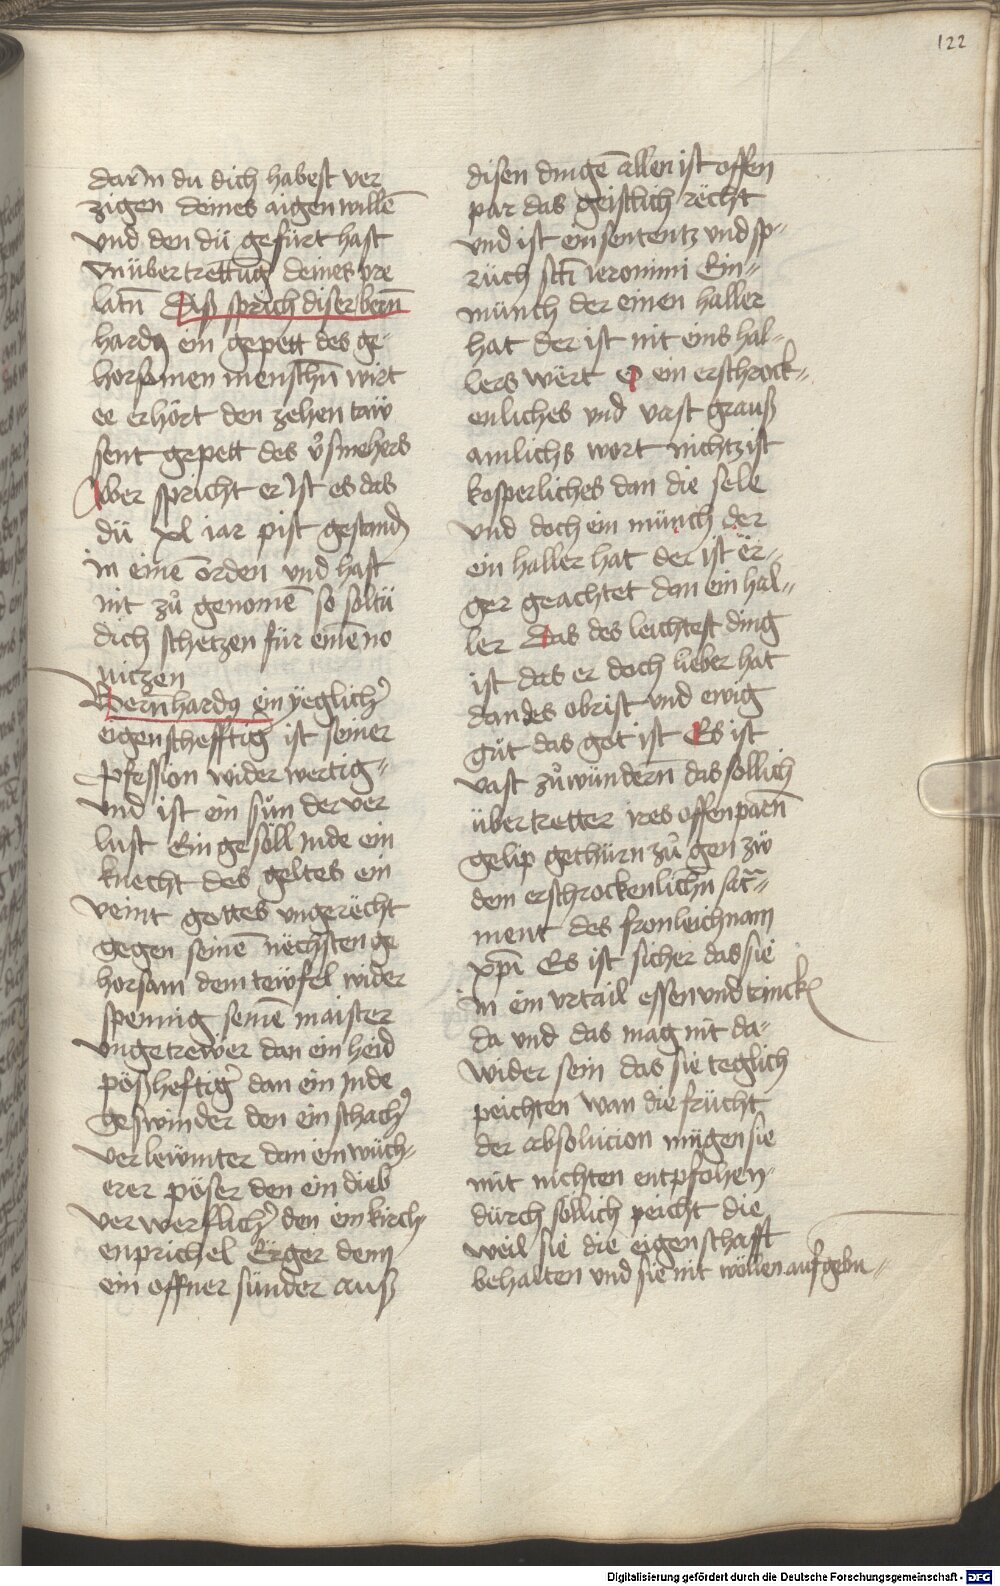 122
darin du dich habest ver
zigen deines aigen willē
vnd den dü gefürt hast
in übertrettūg deines pre
latn̄ Diß sprich diser bern̄
hardꝯ ein gepett des ge
horsamen menschn̄ wirt
ee erhört den zehen taẅ
sent gepett des v̉smehers
Aber spricht er ist es das
dü xl iar pist gestandn̄
in einē orden vnd hast
nit zů genomē so soltü
dich schetzen für einē no
uiczen
Bernhardꝯ ein yeglich̉
eigenschefftig̉ ist seiner
ꝓfession wider wertig
vnd ist ein sůn der ver
lust Ein gesöll Jude ein
knecht des geltes ein
veint gottes vngerëcht
gegen seinē nëchsten ge
horsam dem tewfel wider
spennig seinē maister
vngetrewer dan ein heid
pößheftig̉ dan ein Jude
geswinder den ein schach̉
verlewmter dan ein wüch
erer pöser den ein dieb
verwerflich̉ den ein kirch
enprichel Erger denn
ein offner sünder auß
disen dingē allen ist offen
par das geistlich rëcht
vnd ist ein sententz vnd sp
rüch sc̄ti ieronimi Ein
münch der einen haller
hat der ist nit eins hal
lers wërt O ein erschrock
enliches vnd vast grauß
amlichs wort nichtz ist
kosperliches dan die sele
vnd doch ein münch der
ein haller hat der ist ër
ger geachtet dan ein hal
ler Das des leichtest ding
ist das er doch lieber hat
dan des obrist vnd ewig
gůt das got ist Es ist
vast zůwündern̄ das sollich
übertretter ires offenparn̄
gelip gethürn zů gen zů
dem erschrockenlichn̄ sac̄
ment des fronleichnam
xp̄i Es ist sicher das sie
in ein vrtail essen vnd trinckn̄
da vnd das mag nit da
wider sein das sie teglich
peichten wan die frücht
der absolucion mügen sie
mit nichten entpfohen
dürch söllich peicht die
weil sie die eigenschafft
behalten vnd sie nit wöllen aufgebn
Digitalisierung gefördert durch die Deutsche Forschungsgemeinschaft - DFG